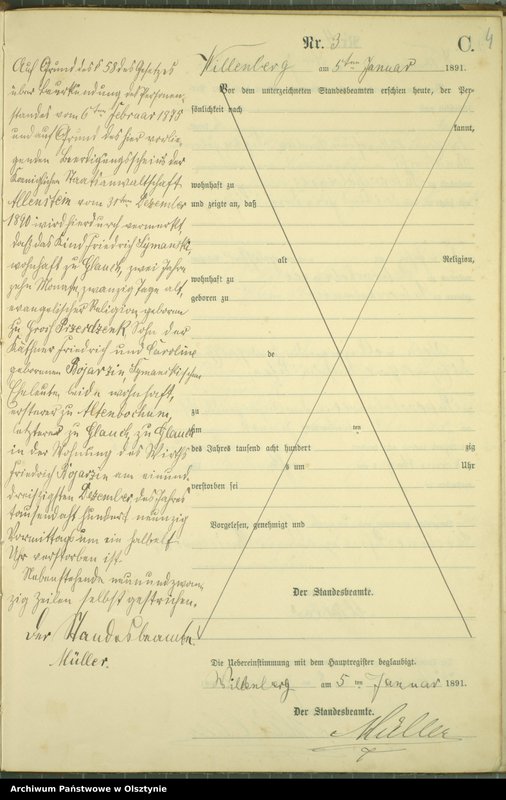 Nr. 3
C.
4
Willenberg am 5ten Januar 1891.
Vor dem unterzeichneten Standesbeamten erschien heute, der Per-
sönlichkeit nach
kannt,
wohnhaft zu
und zeigte an, daß
alt Religion,
wohnhaft zu
geboren zu
de
zu
am ten
des Jahres tausend acht hundert zig
s um Uhr
verstorben sei
Vorgelesen, genehmigt und
Der Standesbeamte.
Auf Grund des § 58 des Gesetzes
über Beurkundung des Personen-
standes vom 6ten Februar 1875
und auf Grund des hier vorlie-
genden Beerdigungsscheins der
Koeniglichen Staatsanwaltschaft
Allenstein vom 31ten Dezember
1890 wird hierdurch vermerkt,
daß das Kind Friedrich Symanski,
wohnhaft zu Glauch, zwei Jahre
zehn Monate, zwanzig Tage alt,
evangelischer Religion, geboren
zu Groß Sohn der
Käthner Friedrich und Caroline
geborenen Bojarzin, Symanskischen
Eheleute, beide wohnhaft,
ersterer zu Altenbochum,
letztere zu Glauch, zu Glauch
in der Wohnung des Wirths
Friedrich Bojarzin am einund-
dreißigsten Dezember des Jahres
tausend acht hundert neunzig
Vormittags um ein halbelf
Uhr verstorben ist.
Nebenstehende neunundzwan-
zig Zeilen selbst gestrichen.
Der Standesbeamte.
Müller.
Die Uebereinstimmung mit dem Hauptregister beglaubigt.
Willenberg am 5 ten Januar 1891.
Der Standesbeamte.
Müller
Archiwum Państwowe w Olsztynie